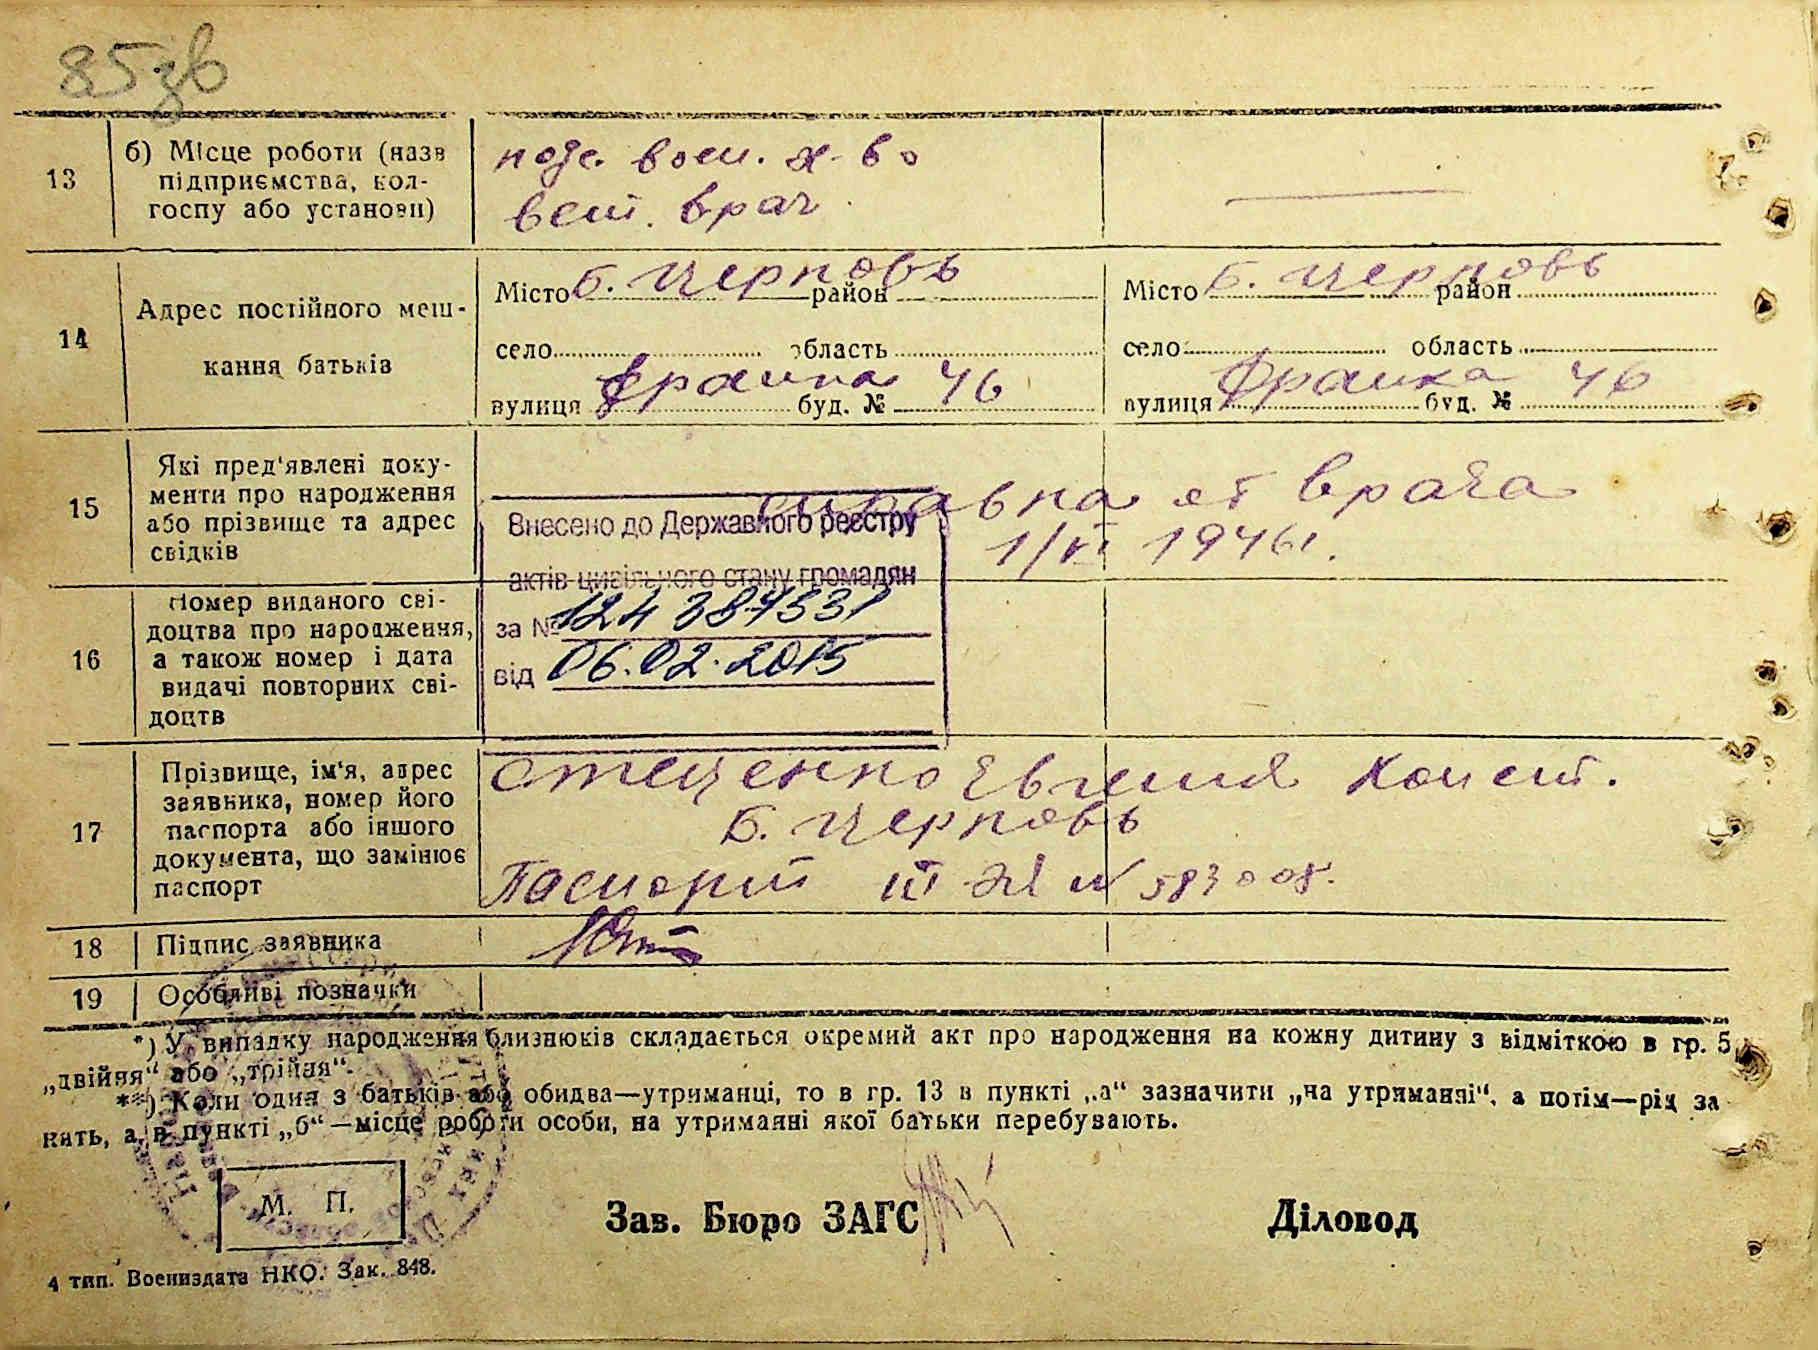 85зв
13
б) Місце роботи (назв
підприємства, кол-
госпу або установи)
подс. воен. х-во
вет. врач.
14
Адрес постійного меш-
кання батьків
Місто Б. Церковь район
село область
вулиця Франка буд. № 46
Місто Б. Церковь район
село область
вулиця Франка буд. № 46
15
Які пред'явлені доку-
менти про народження
або прізвище та адрес
свідків
справка от врача
1/VI 1946 г.
Внесено до Державного реєстру
актів цивільного стану громадян
за №
від 06.02.2015
16
Номер виданого сві-
доцтва про народження,
а також номер і дата
видачі повторних сві-
доцтв
17
Прізвище, ім'я, адрес
заявника, номер його
паспорта або іншого
документа, що замінює
паспорт
Стеценко Евгения Конст.
Б. Церковь
Паспорт III № 583008.
18
Підпис заявника
19
Особливі позначки
*) У випадку народження близнюків складається окремий акт про народження на кожну дитину з відміткою в гр. 5
„двійня“ або „трійня“.
**) Коли один з батьків або обидва—утриманці, то в гр. 13 в пункті „а“ зазначити „на утриманні“, а потім—рід за
нять, а в пункті „б“—місце роботи особи, на утриманні якої батьки перебувають.
М. П.
Зав. Бюро ЗАГС
Діловод
4 тип. Воениздата НКО. Зак. 848.